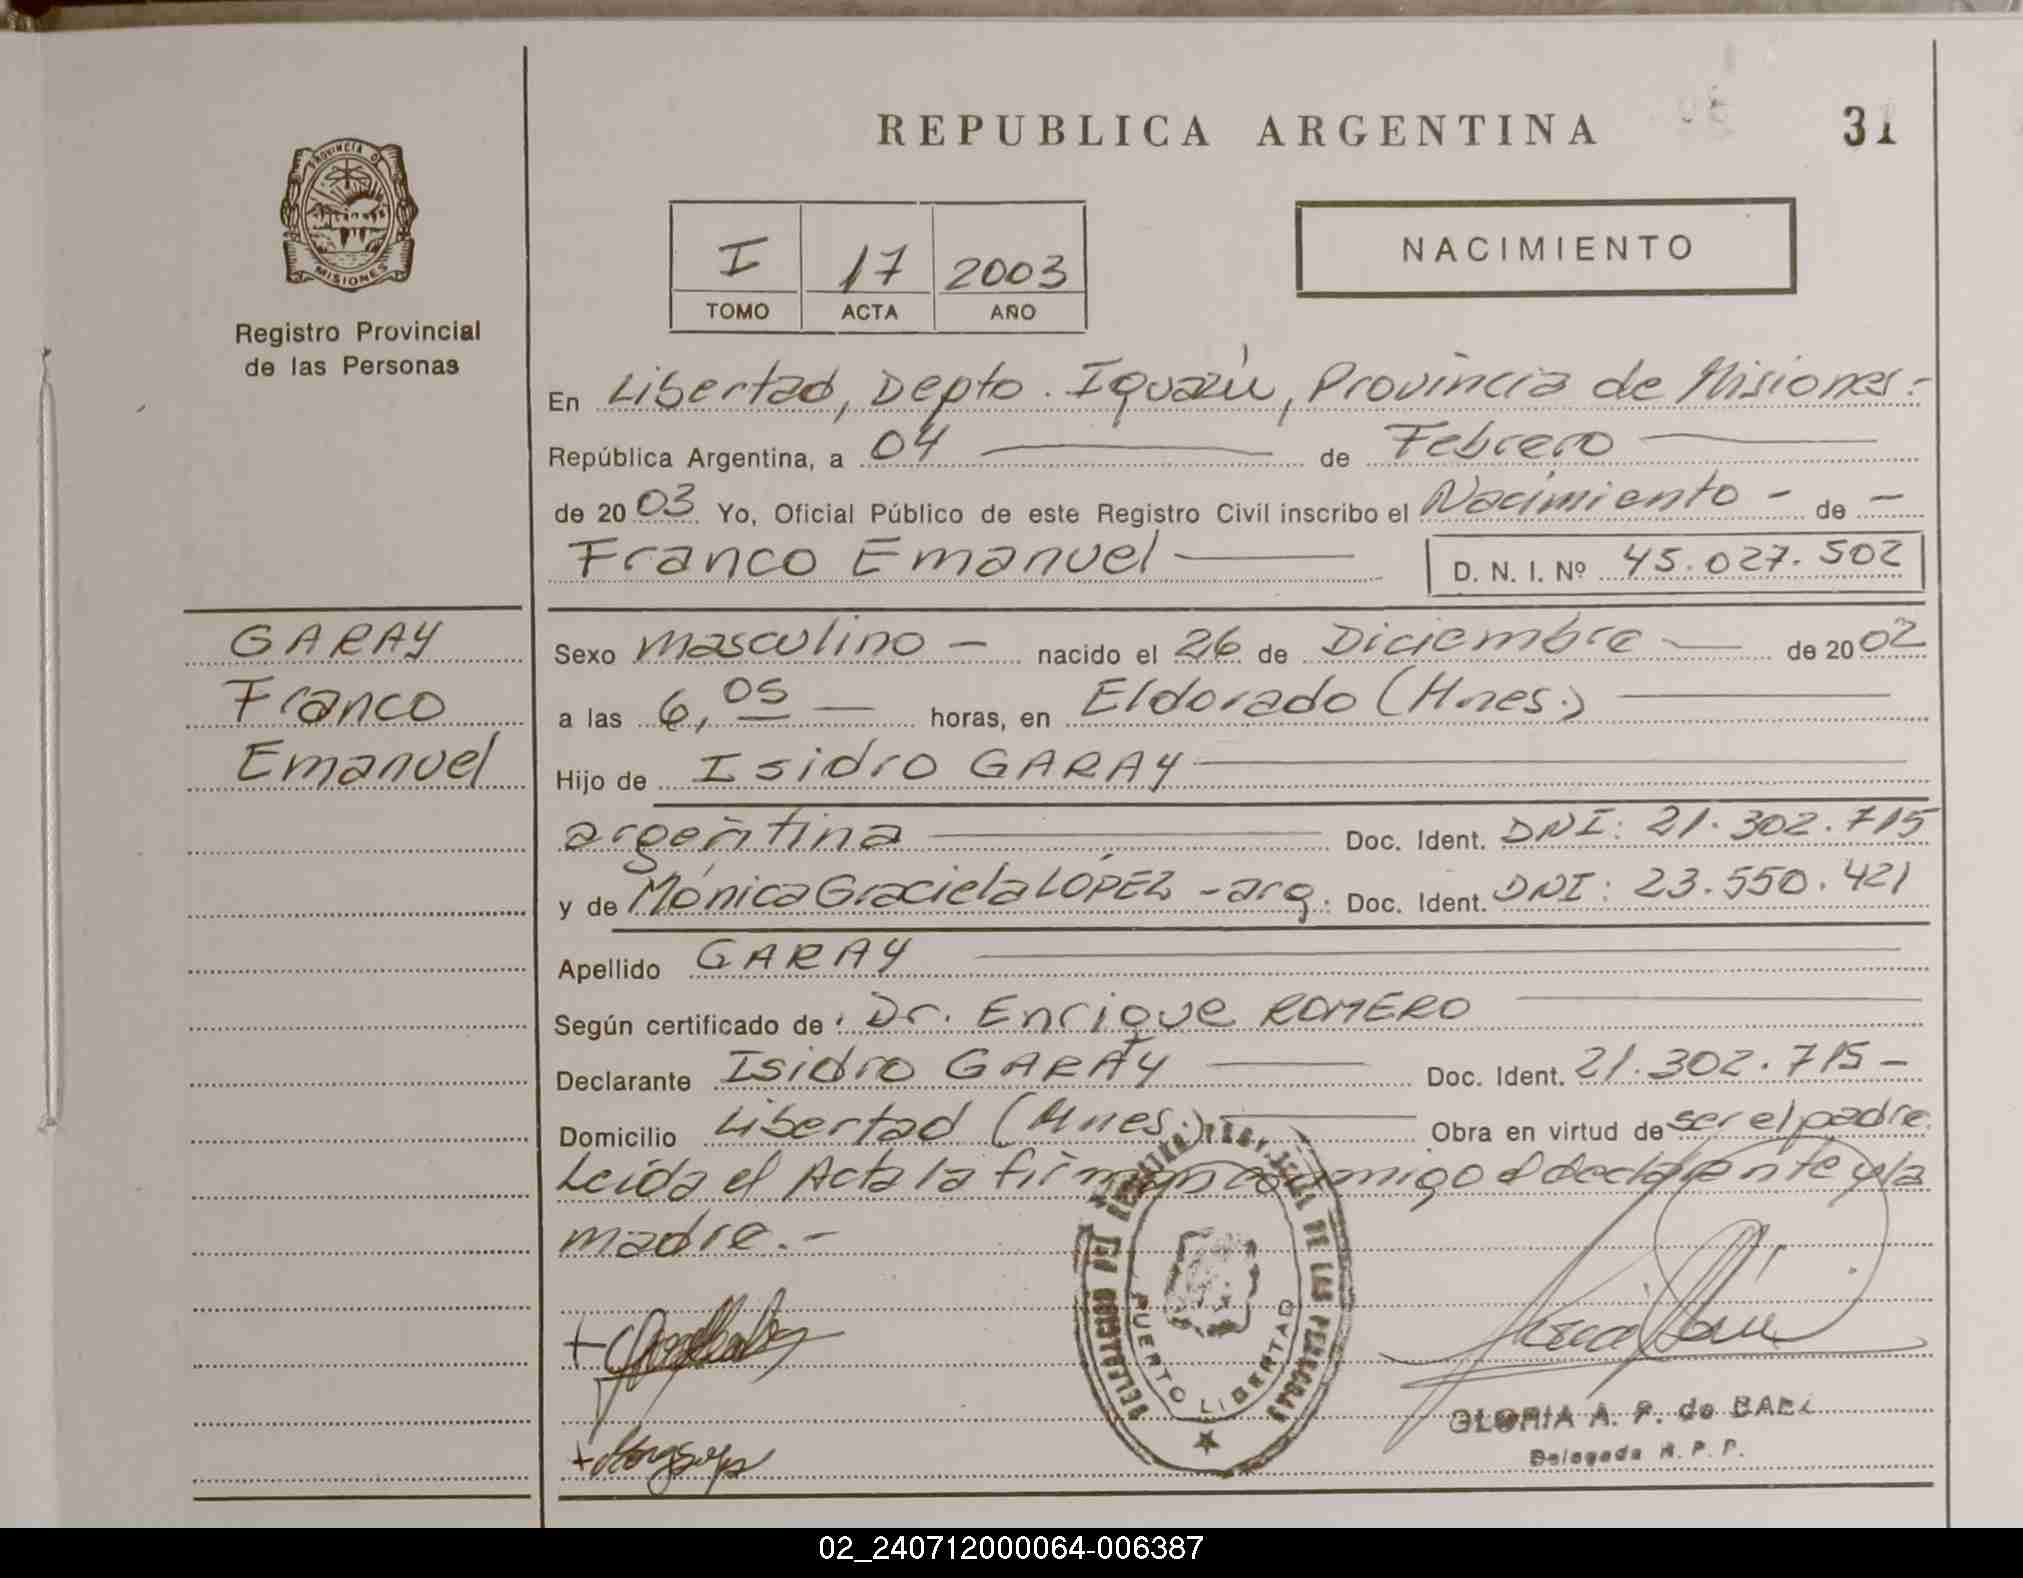 REPUBLICA ARGENTINA
31
PROVINCIA DE
MISIONES
Registro Provincial
de las Personas
I 17 2003
TOMO ACTA AÑO
NACIMIENTO
En Libertad, Depto. Iguazú, Provincia de Misiones.-
República Argentina, a 04 de Febrero
de 2003 Yo, Oficial Público de este Registro Civil inscribo el Nacimiento - de -
Franco Emanuel D. N. I. Nº 45.027.502
GARAY
Franco
Emanuel
Sexo masculino - nacido el 26 de Diciembre de 2002
a las 6,05 horas, en Eldorado (Mnes.)
Hijo de Isidro GARAY
argentina Doc. Ident. DNI: 21.302.715
y de Mónica Graciela LÓPEZ - arg. Doc. Ident. DNI: 23.550.421
Apellido GARAY
Según certificado de: Dr. Enrique ROMERO
Declarante Isidro GARAY Doc. Ident. 21.302.715-
Domicilio Libertad (Mnes.) Obra en virtud de ser el padre.
Leída el Acta la firman conmigo el declarante y la
madre.-
DELEGACION DEL REGISTRO DE LAS PERSONAS
PUERTO LIBERTAD
GLORIA A. P. de
Delegada R. P. P.
02_240712000064-006387